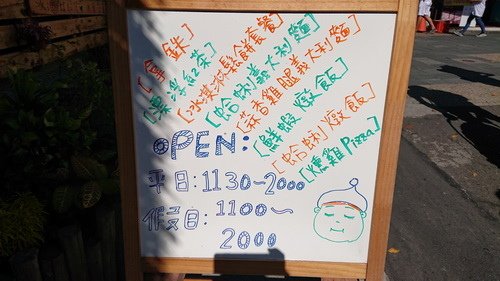 [厚鬆餅]
[漂浮紅茶]
[冰淇淋鬆餅套餐]
[蛤蜊義大利麵]
[蒜香雞腿義大利麵]
[鮮蝦燉飯]
[蛤蜊燉飯]
[燻雞Pizza]
OPEN:
平日:1130~2000
假日:1100~
2000